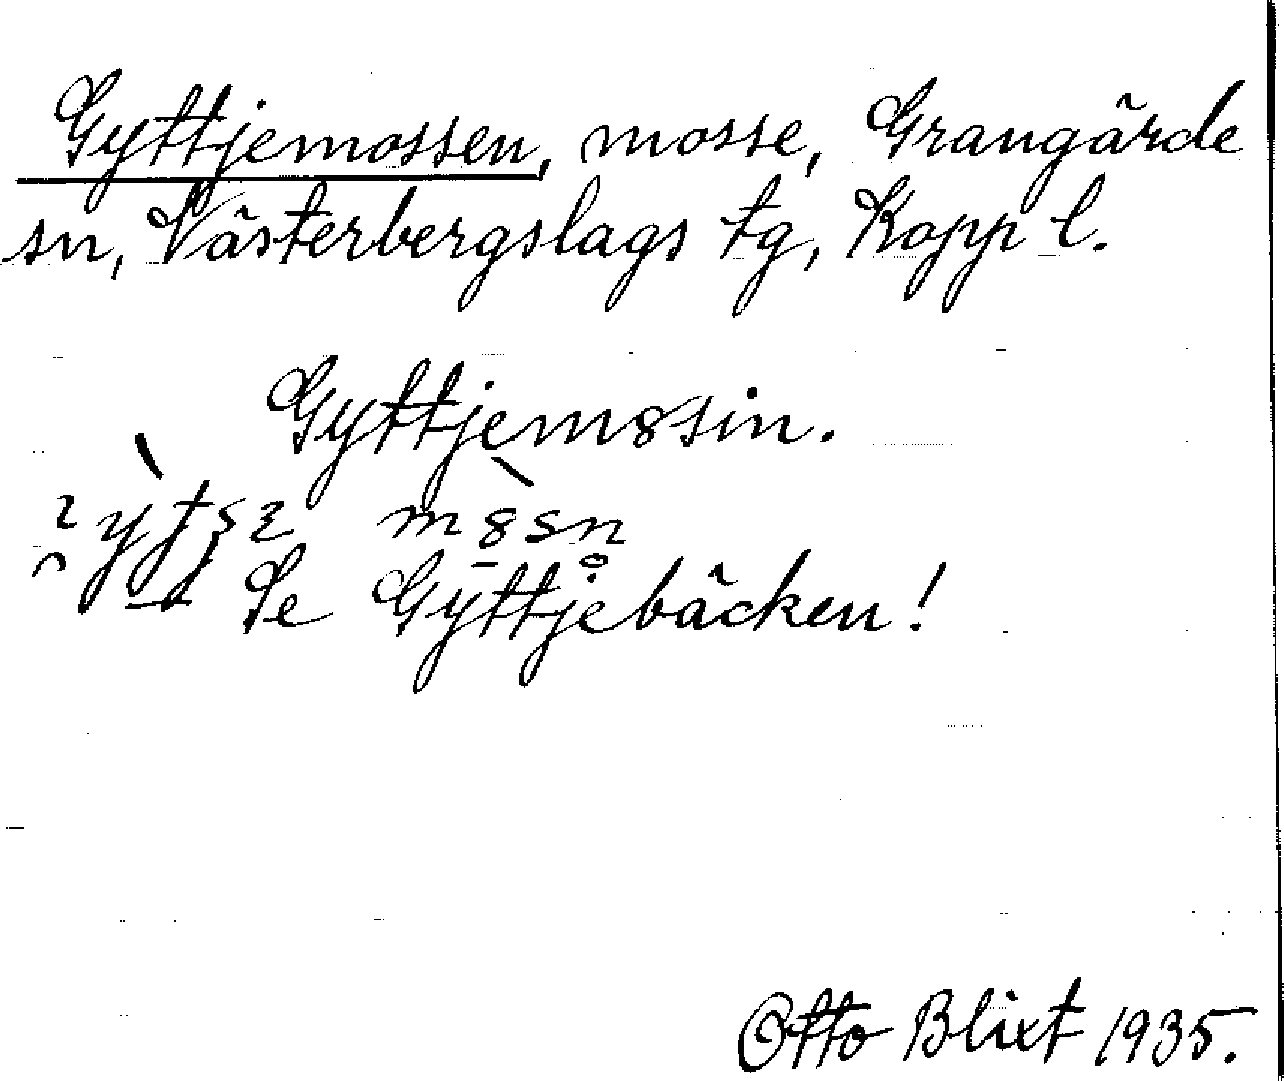 Gyttjemossen, mosse, Grangärde
sn, Västerbergslags tg, Kopp l.
Gyttjem8sin.
m8sn
Se Gyttjebäcken!
Otto Blixt 1935.